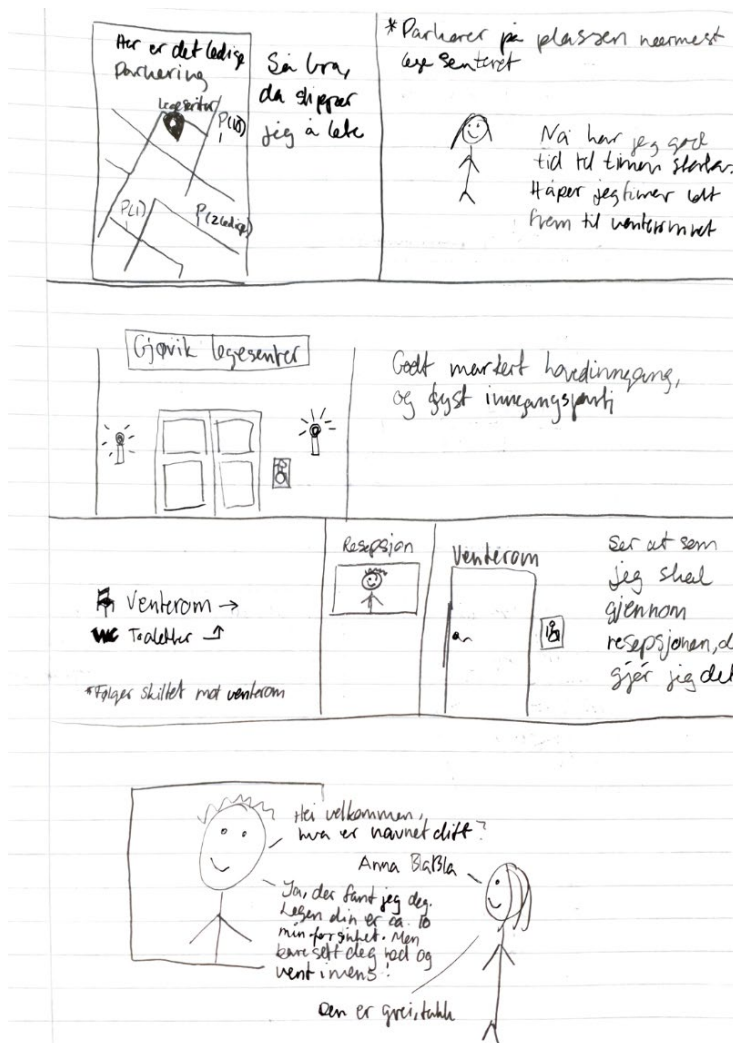 Her er det ledige
Parkering
Legesenter
P(10)
P(1)
P(2 ledige)
Så bra,
da slipper
jeg å lete
*Parkerer på plassen nærmest
legesenteret
Nå har jeg god
tid til timen starter.
Håper jeg finner lett
frem til venterommet
Gjøvik legesenter
Godt markert hovedinngang,
og lyst inngangsparti
Venterom →
WC Toaletter
*Følger skiltet mot venterom
Resepsjon
Venterom
Ser ut som
jeg skal
gjennom
resepsjonen, d
gjør jeg det
Hei velkommen,
hva er navnet ditt?
Anna BlaBla
Ja, der fant jeg deg.
Legen din er ca. 10
min forsinket. Men
bare sett deg ned og
vent imens!
Den er grei, takk